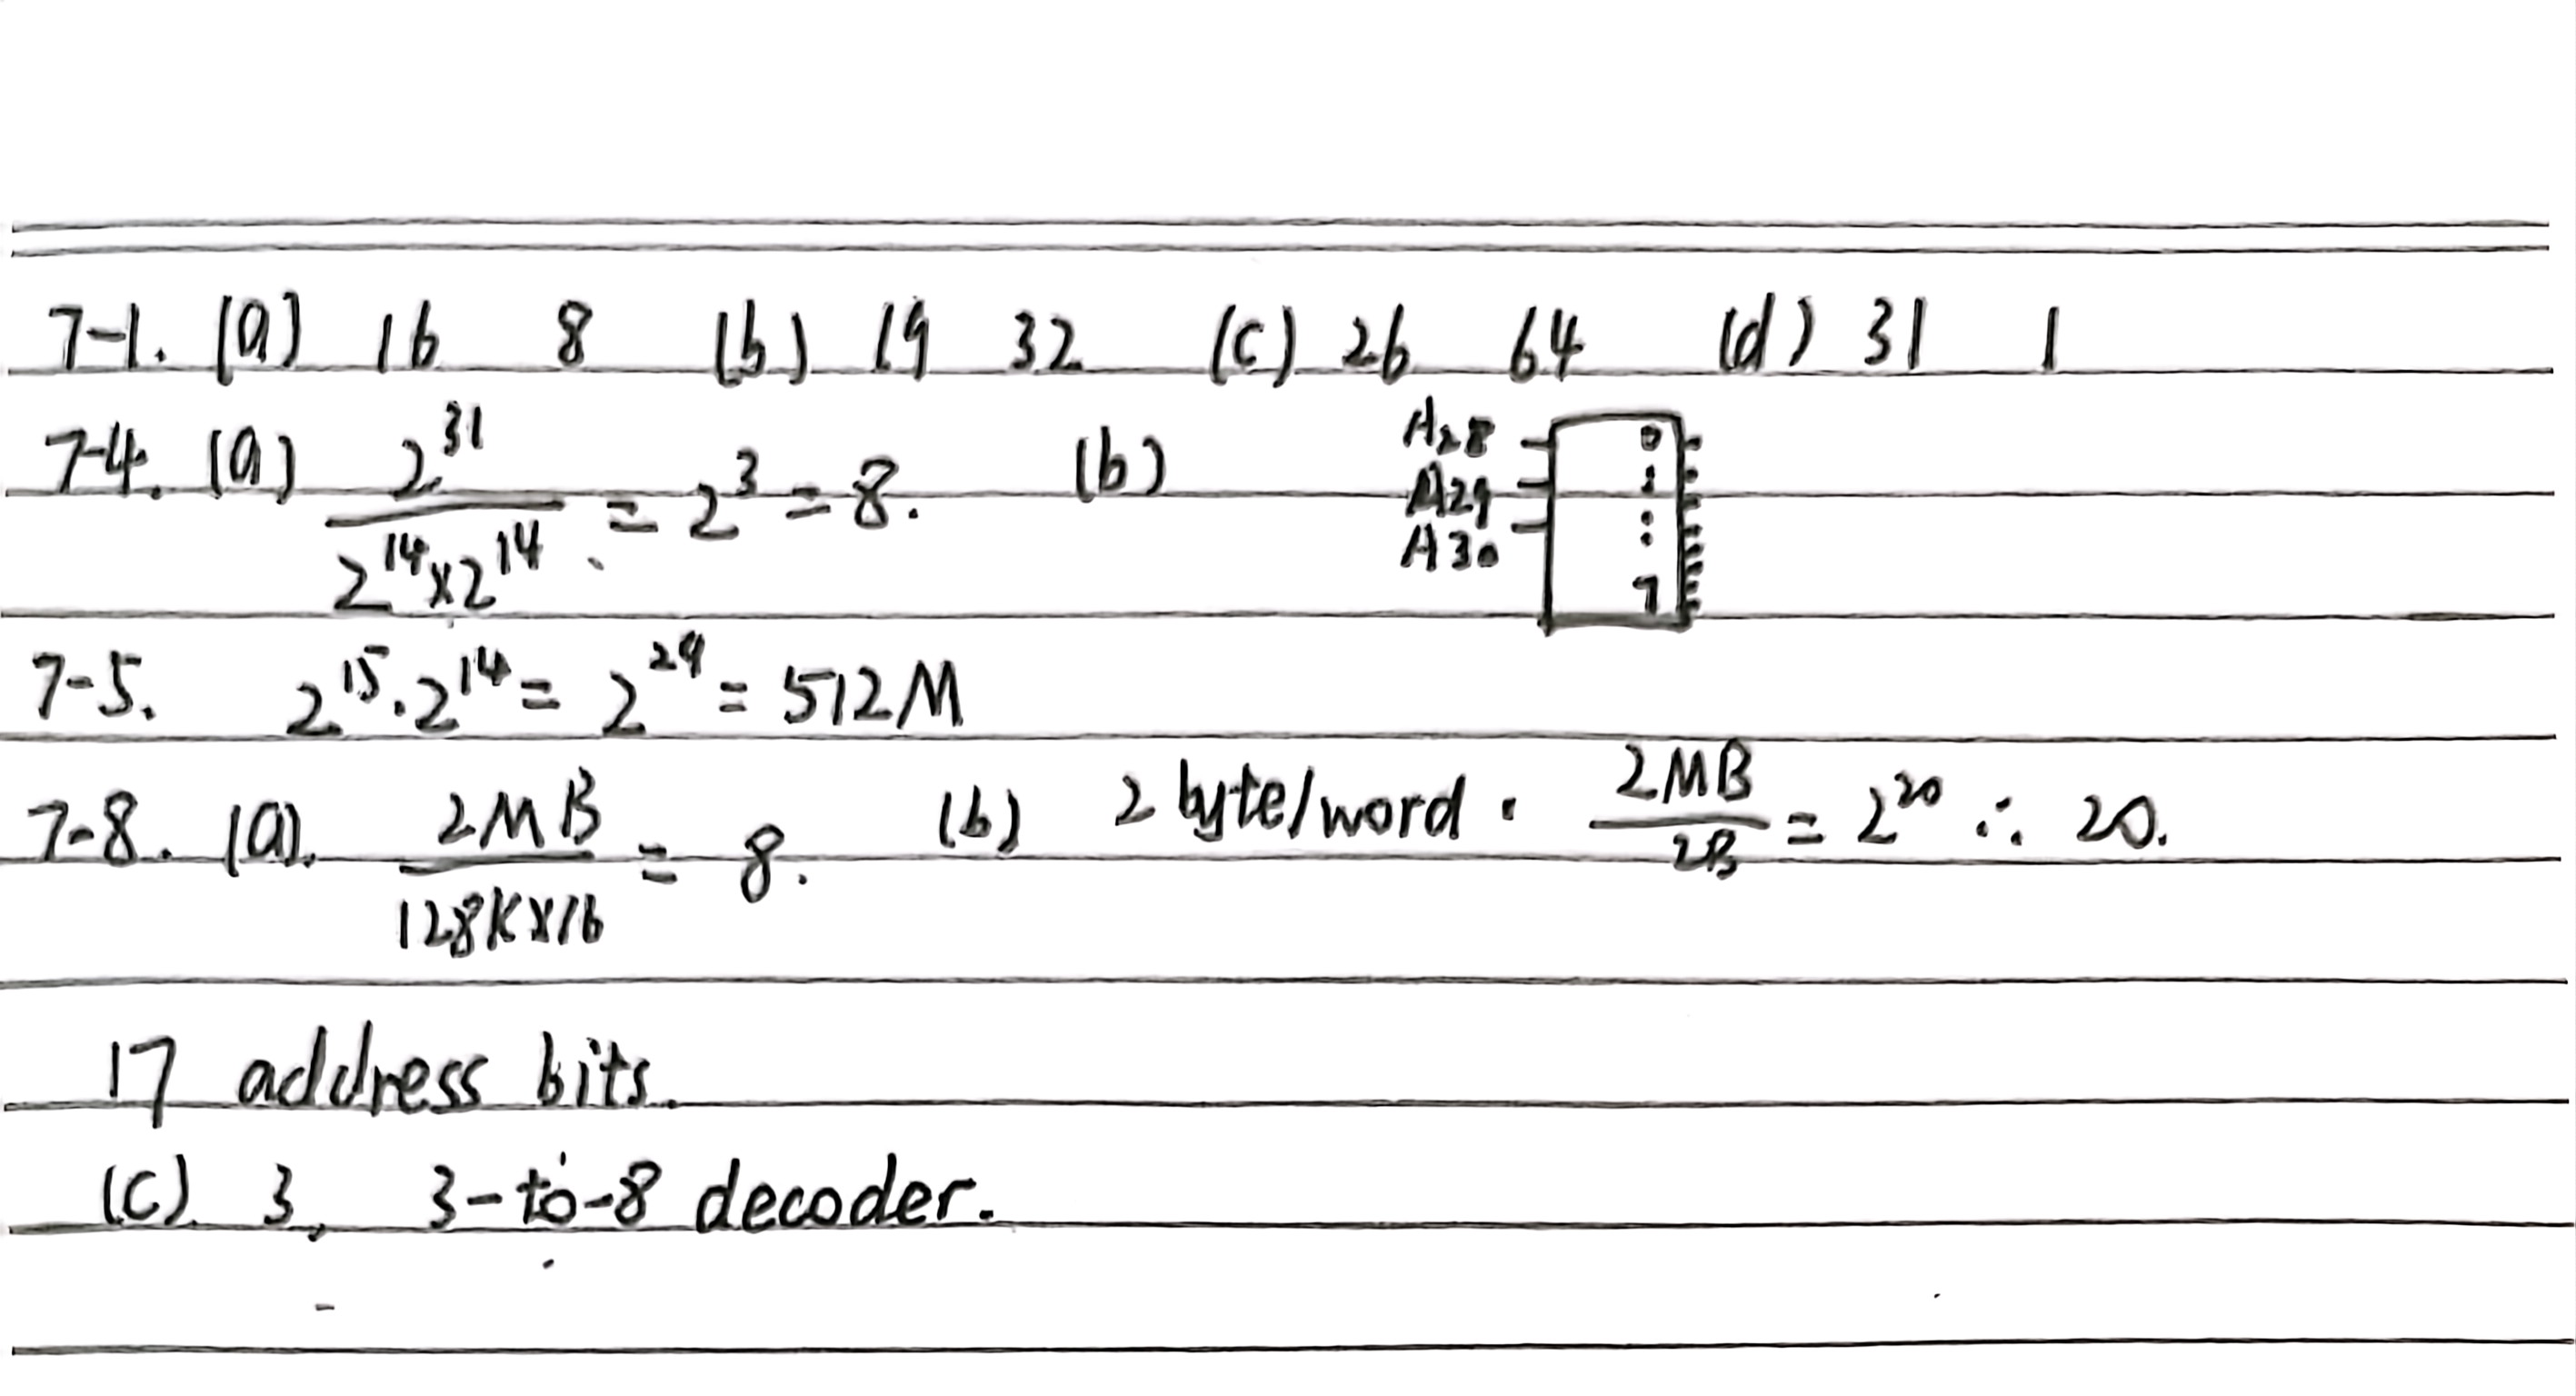 7-1. (a) 16 8 (b) 19 32 (c) 26 64 (d) 31 1
7-4. (a) 2^31 / (2^14 × 2^14) = 2^3 = 8. (b) A28 A29 A30 0 1 : 7
7-5. 2^15 · 2^14 = 2^29 = 512M
7-8. (a). 2MB / 128K×16 = 8. (b) 2 byte/word. 2MB / 2B = 2^20 ∴ 20.
17 address bits.
(c) 3, 3-to-8 decoder.